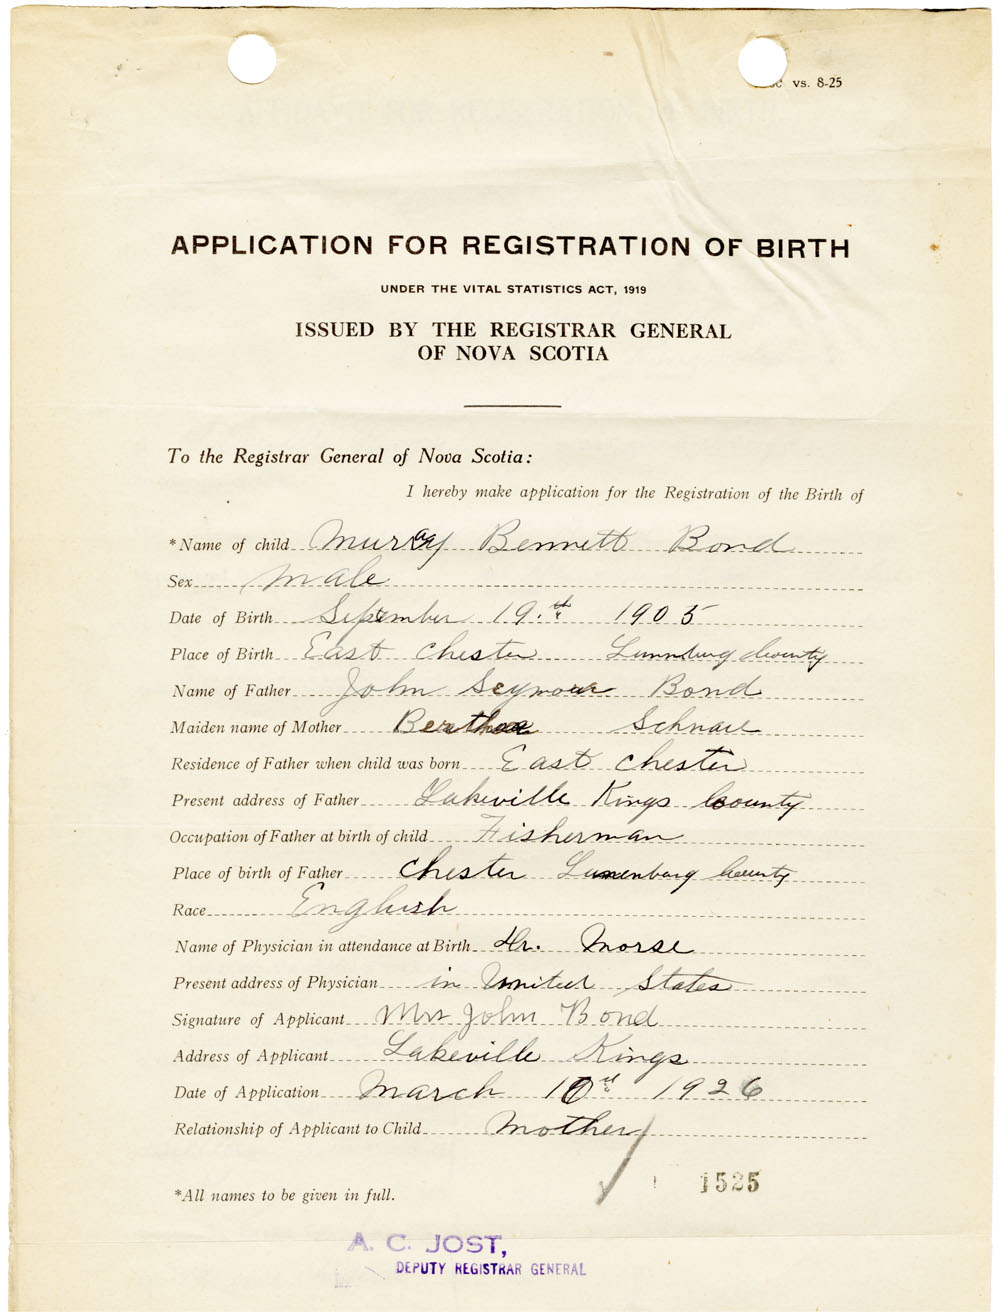 vs. 8-25
APPLICATION FOR REGISTRATION OF BIRTH
UNDER THE VITAL STATISTICS ACT, 1919
ISSUED BY THE REGISTRAR GENERAL
OF NOVA SCOTIA
To the Registrar General of Nova Scotia:
I hereby make application for the Registration of the Birth of
*Name of child Murray Bennett Bond
Sex Male
Date of Birth September 19.th 1905
Place of Birth East Chester Lunnburg County
Name of Father John Seymour Bond
Maiden name of Mother Bertha Schnare
Residence of Father when child was born East Chester
Present address of Father Lakeville Kings County
Occupation of Father at birth of child Fisherman
Place of birth of Father Chester Lunenburg County
Race English
Name of Physician in attendance at Birth Dr. Morse
Present address of Physician in United States
Signature of Applicant Mrs John Bond
Address of Applicant Lakeville Kings
Date of Application March 10 1926
Relationship of Applicant to Child Mother
*All names to be given in full.
1525
A. C. JOST,
DEPUTY REGISTRAR GENERAL